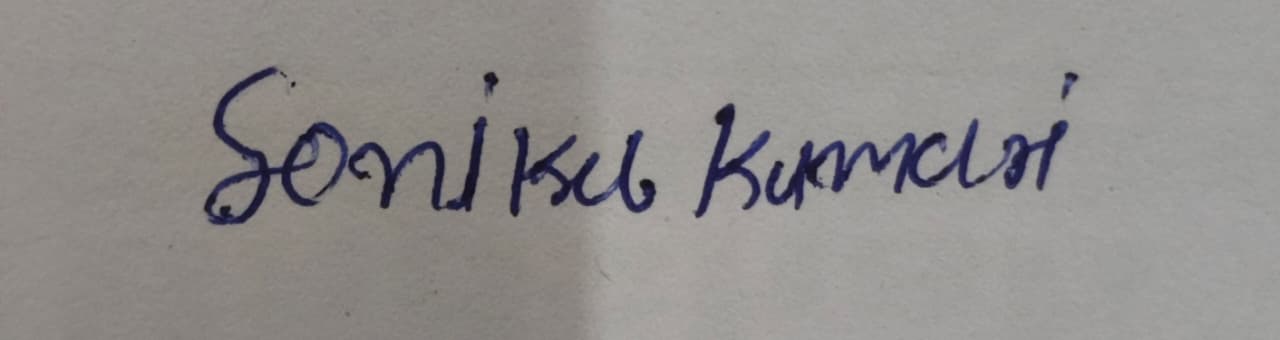 Sonika Kumari